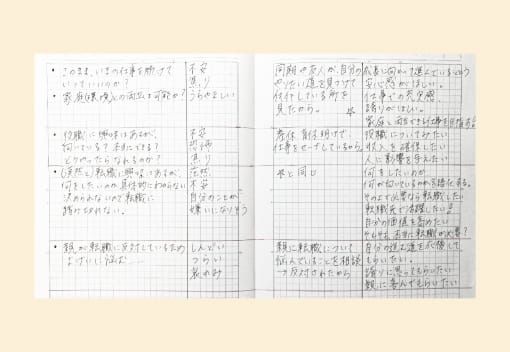 ・このまま、いまの仕事を続けて
いっていいのか?
・家庭(環境)との両立は可能か?
不安
焦り
うらやましい
同期や友人が、自分の
やりたい道を見つけて
行動している所を
見たから。
成長に向かって進んでいるという
安心感がほしい。
仕事での充実感、
誇りがほしい。
家庭と両立できる仕事を目指す
・役職に興味はあるが、
向いている?本当にできる?
どうやったらなれるのか?
不安
恐怖
焦り
産休育休明けで、
仕事をセーブしているから。
役職についてみたい
収入を確保したい
人に影響を与えたい
・(漠然と)転職に興味はあるが、
何をしたいのか具体的にわからない
決められないので転職に
踏み切れない。
茫然、
不安
自分のことが
嫌いになりそう
※と同じ
何をしたいのか
何が向いているのか言語化する。
その上で必要なら転職したい
転職先で活躍したい
自分の価値を高めたい
そもそも、本当に転職が必要?
・親が転職に反対しているため
よけいに悩む…
しんどい
つらい
哀れみ
親に転職について
悩んでいることを相談
→反対されたから
自分の進む道を応援して
もらいたい。
誇りに思ってもらいたい
親に喜んでもらいたい